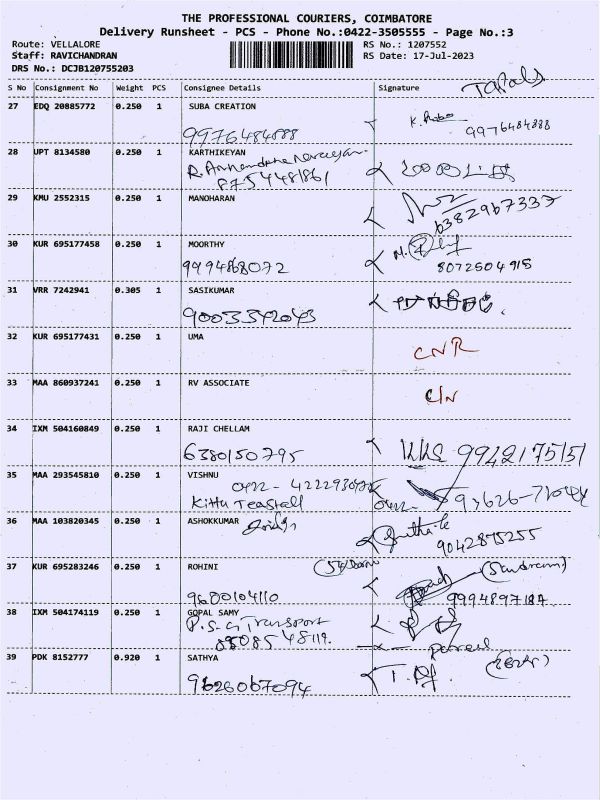 THE PROFESSIONAL COURIERS, COIMBATORE
Delivery Runsheet - PCS - Phone No.:0422-3505555 - Page No.:3
Route: VELLALORE RS No.: 1207552
Staff: RAVICHANDRAN RS Date: 17-Jul-2023
DRS No.: DCJB120755203
S No Consignment No Weight PCS Consignee Details Signature
27 EDQ 20885772 0.250 1 SUBA CREATION
9976484888 9976484888
28 UPT 8134580 0.250 1 KARTHIKEYAN
8754481861
29 KMU 2552315 0.250 1 MANOHARAN
6382967337
30 KUR 695177458 0.250 1 MOORTHY
9994868072 8072504915
31 VRR 7242941 0.305 1 SASIKUMAR
9003342043
32 KUR 695177431 0.250 1 UMA
CNR
33 MAA 860937241 0.250 1 RV ASSOCIATE
C/N
34 IXM 504160849 0.250 1 RAJI CHELLAM
6380150795 9942175151
35 MAA 293545810 0.250 1 VISHNU
0422-
Kittu Teastall
36 MAA 103820345 0.250 1 ASHOKKUMAR
9042875255
37 KUR 695283246 0.250 1 ROHINI
9600104110 (Sundram)
38 IXM 504174119 0.250 1 GOPAL SAMY
P.S.G Transport
39 PDK 8152777 0.920 1 SATHYA
9626067094